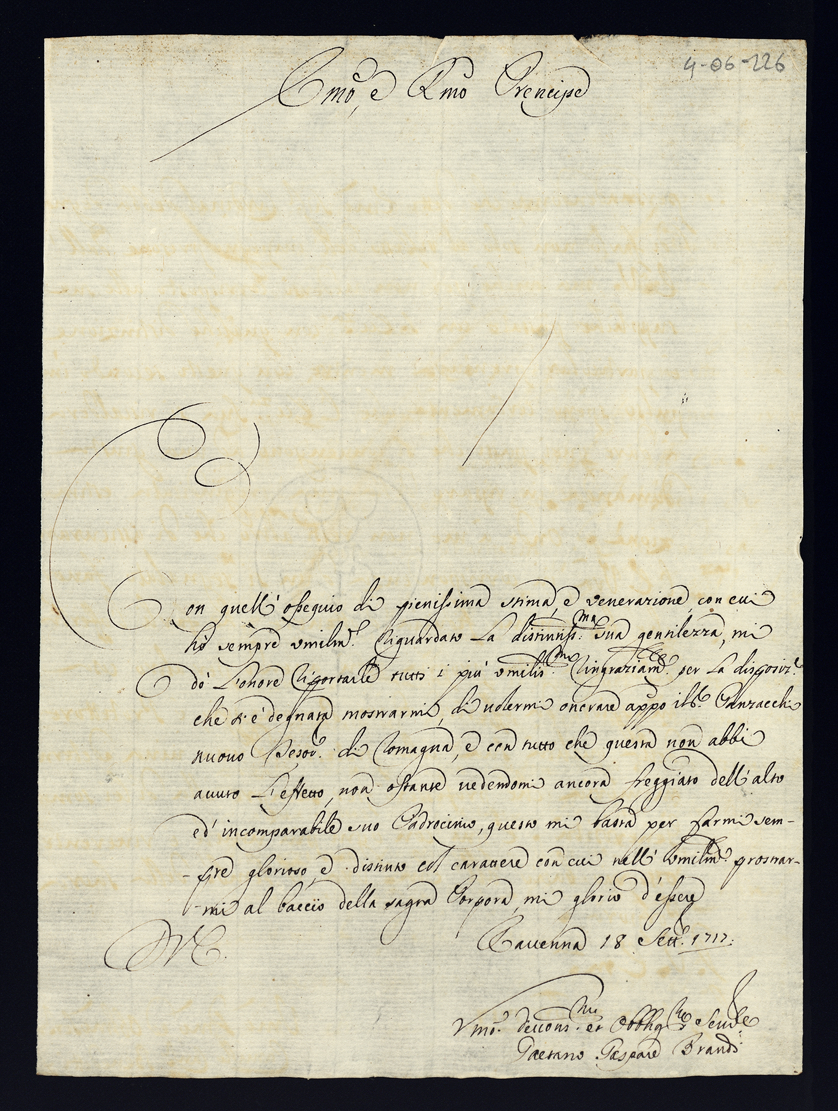 4-06-226
Emo, e Rmo Prencipe
Con quell' ossequio di pienissima stima, e venerazione, con cui
hò sempre vmilm.te riguardato la distintiss.ma sua gentilezza, mi
dò l'onore riportarle tutti i più vmiliss.mi ringraziam.ti per la disposiz.e
che s' è degnata mostrarmi, di volermi onorare appo il Panzacchi
nuovo Tesor.e di Romagna, e con tutto che questa non abbi
avuto l'effetto, non ostante vedendomi ancora freggiato dell' alto
ed' incomparabile suo Padrocinio, questo mi basta per farmi sem-
-pre glorioso, e distinto col carattere con cui nell' vmilm.e prostrar-
-mi al baccio della sagra Porpora, mi glorio d'essere
Ravenna 18 Sett.e 1717.
D V E.
Vmo. deuotis.mo et Obblig.mo Seru.e
Gaetano Gaspare Brandi